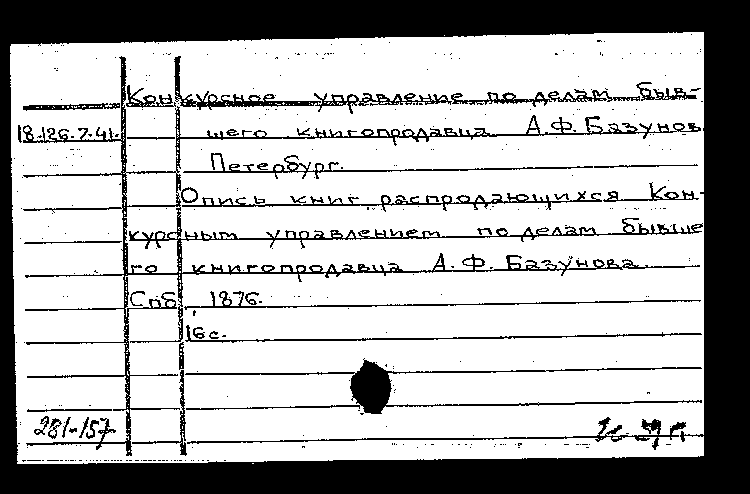 Конкурсное управление по делам быв-
18.126.7.41. шего книгопродавца А.Ф.Базунов
Петербург.
Опись книг, распродающихся Кон-
курсным управлением по делам бывше
го книгопродавца А.Ф. Базунова
Спб, 1876.
16с.
281-157